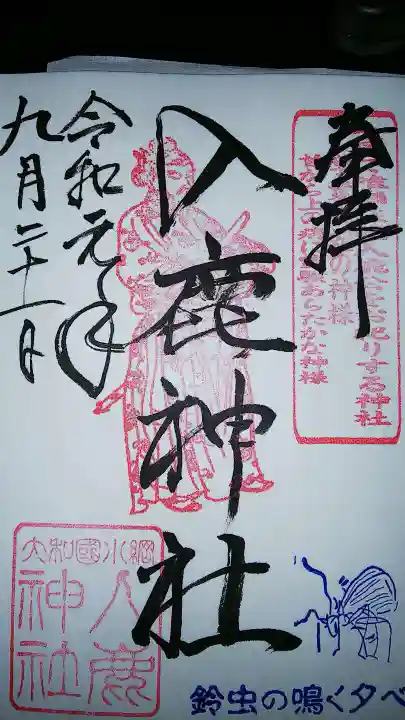 奉拝
をお祀りする神社
の神様
あらたかな神様
入鹿神社
令和元年
九月二十一日
大和國小綱
入鹿
神社
鈴虫の鳴く夕べ